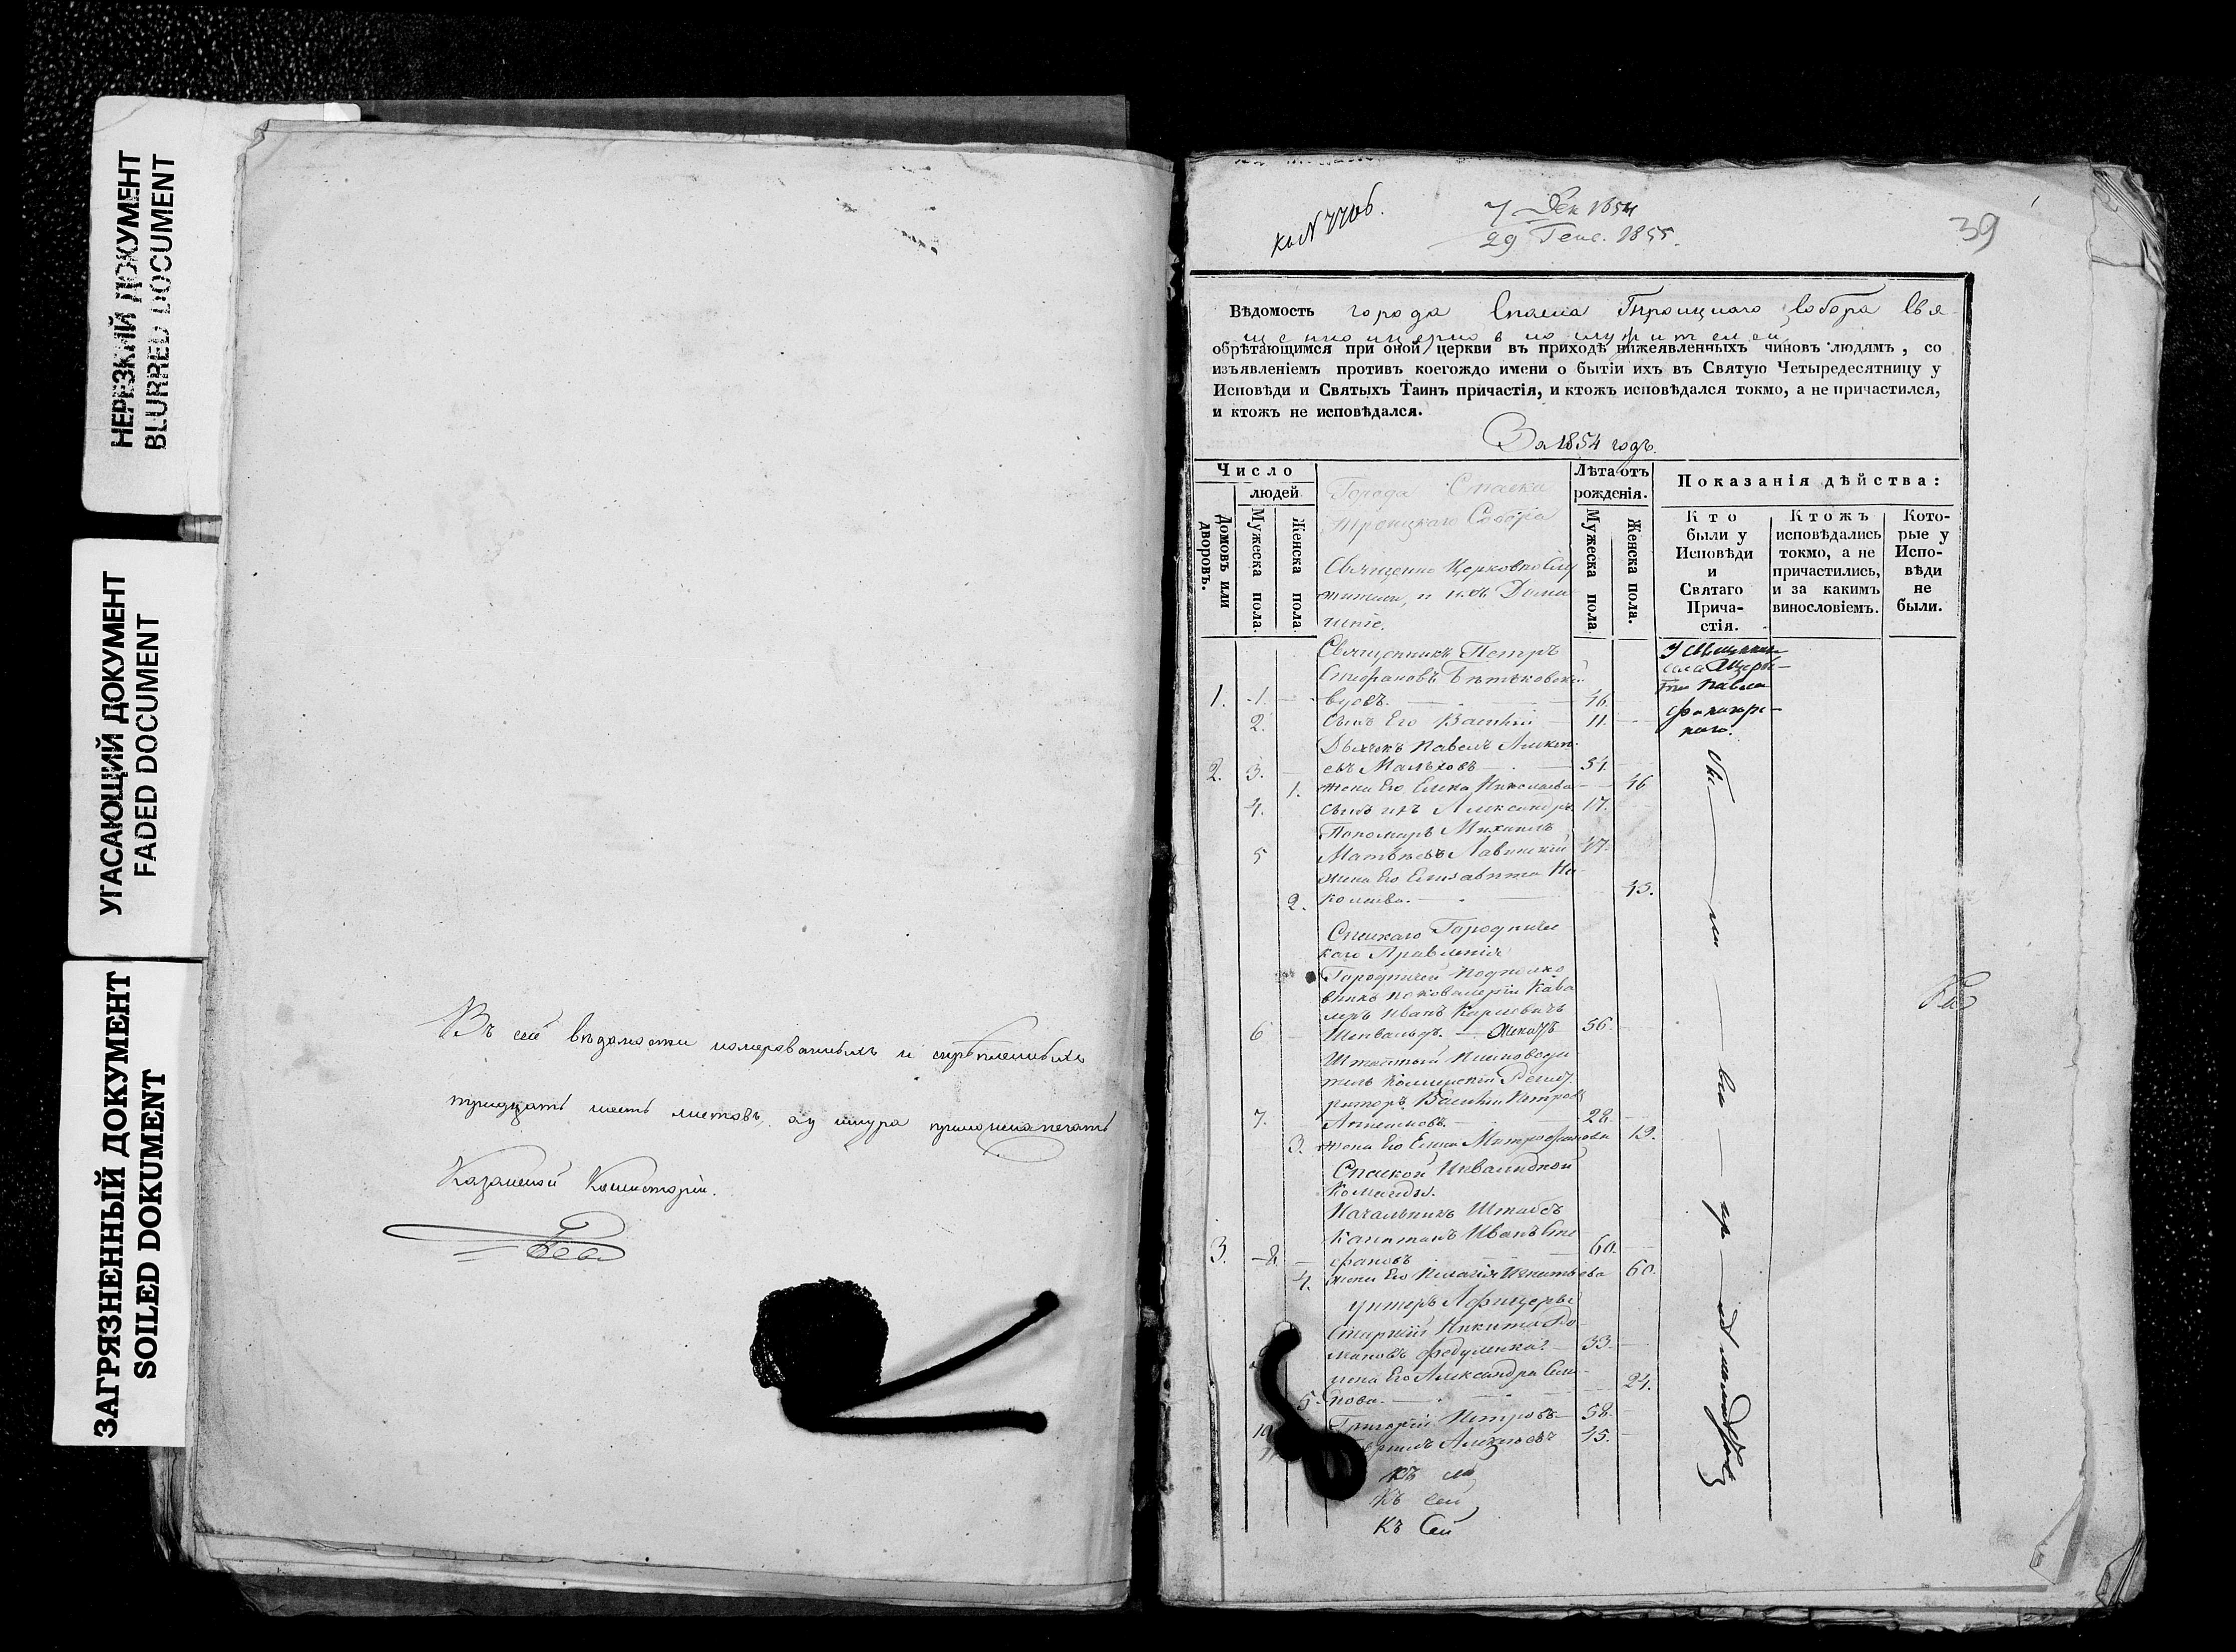 НЕРЕЗКИЙ ДОКУМЕНТ
BLURRED DOCUMENT
УГАСАЮЩИЙ ДОКУМЕНТ
FADED DOCUMENT
ЗАГРЯЗНЕННЫЙ ДОКУМЕНТ
SOILED DOKUMENT
Въ сей вѣдомости номерованныхъ и скрѣпленныхъ
тридцать шесть листовъ, а у шнура приложена печать
Казанской Консисторіи.
къ № 7706.
7 Дек 1854
29 Генв. 1855.
39
Вѣдомость города Спаска Троицкаго Собора Свя-
щенноцерковнослужителей
обрѣтающимся при оной церкви въ приходѣ нижеявленныхъ чиновъ людямъ, со
изъявленіемъ противъ коегождо имени о бытіи ихъ въ Святую Четыредесятницу у
Исповѣди и Святыхъ Таинъ причастія, и ктожъ исповѣдался токмо, а не причастился,
и ктожъ не исповѣдался.
За 1854 годъ.
Число
людей
Домовъ или дворовъ.
Мужеска пола.
Женска пола.
Города Спаска
Троицкаго Собора
Священно Церковно Слу
жители, и ихъ Дома
шніе.
Лѣта отъ
рожденія.
Мужеска пола
Женска пола.
Показанія дѣйства:
Кто
были у
Исповѣди
и
Святаго
Прича-
стія.
Ктожъ
исповѣдались
токмо, а не
причастились,
и за какимъ
винословіемъ.
Кото-
рые у
Испо-
вѣди
не
были.
Священникъ Петръ
Стефановъ
1. 1. вдовъ. 46.
2. Сынъ Его Василій 11.
Дьячекъ Павелъ Алексѣ-
2. 3. евъ Малѣховъ 51.
1. жена Его Елена Николаева 46
4. сынъ ихъ Александръ 17.
Пономарь Михаилъ
5 Матвѣевъ Лавинскій 47.
жена Его Елизавета Ни
2. колаева. 43.
Спаскаго Городниче
каго Правленія
Городничей Подполко
вникъ Кава
леръ Иванъ Карловичъ
6 56.
Штатный Писмоводи
тель Коллежскій Регист.
раторъ Василій Петровъ
7. 28.
3. жена Его Елена Митрофанова 19.
Спаской Инвалидной
Команды.
Начальникъ Штабсъ
Капитанъ Иванъ Сте
3. 8 фановъ 60.
4. жена Его Пелагія Игнатьева 60.
Унтеръ Афицеры
Старшій Никита Ро-
мановъ Федуленко 33.
жена Его Александра Семе-
5. нова. 24.
10 Григорій Петровъ 58.
Алексѣевъ 45.
У священника
села
Павла
къ сей
къ сей
къ сей